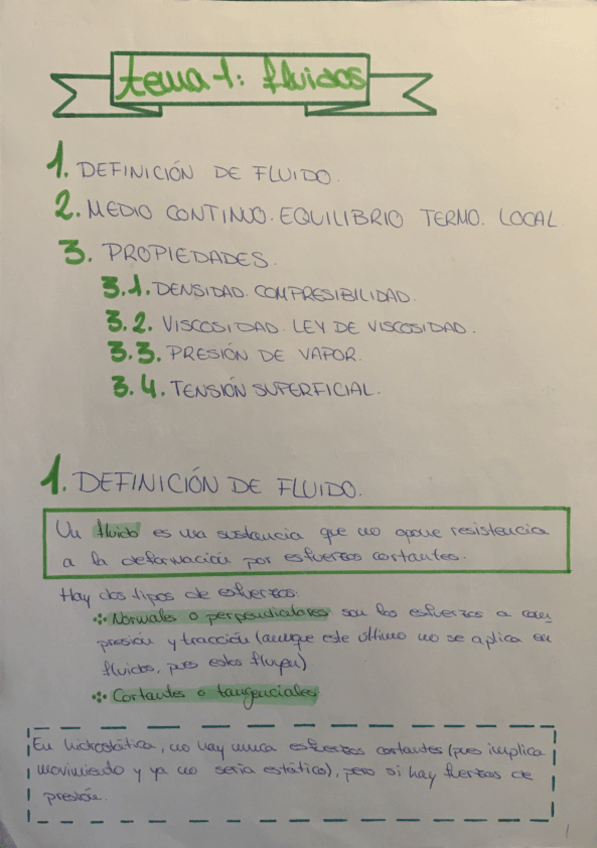 tema 1: fluidos
1. DEFINICIÓN DE FLUIDO.
2. MEDIO CONTINUO. EQUILIBRIO TERMO. LOCAL
3. PROPIEDADES.
3.1. DENSIDAD. COMPRESIBILIDAD.
3.2. VISCOSIDAD. LEY DE VISCOSIDAD.
3.3. PRESIÓN DE VAPOR.
3.4. TENSIÓN SUPERFICIAL.
1. DEFINICIÓN DE FLUIDO.
Un fluido es una sustancia que no opone resistencia
a la deformación por esfuerzos cortantes.
Hay dos tipos de esfuerzos:
Normales o perpendiculares son los esfuerzos a com
presión y tracción (aunque este último no se aplica en
fluidos, pues estos fluyen)
Cortantes o tangenciales
En hidrostática, no hay nunca esfuerzos cortantes (pues implica
movimiento y ya no sería estático), pero si hay fuerzas de
presión.
1